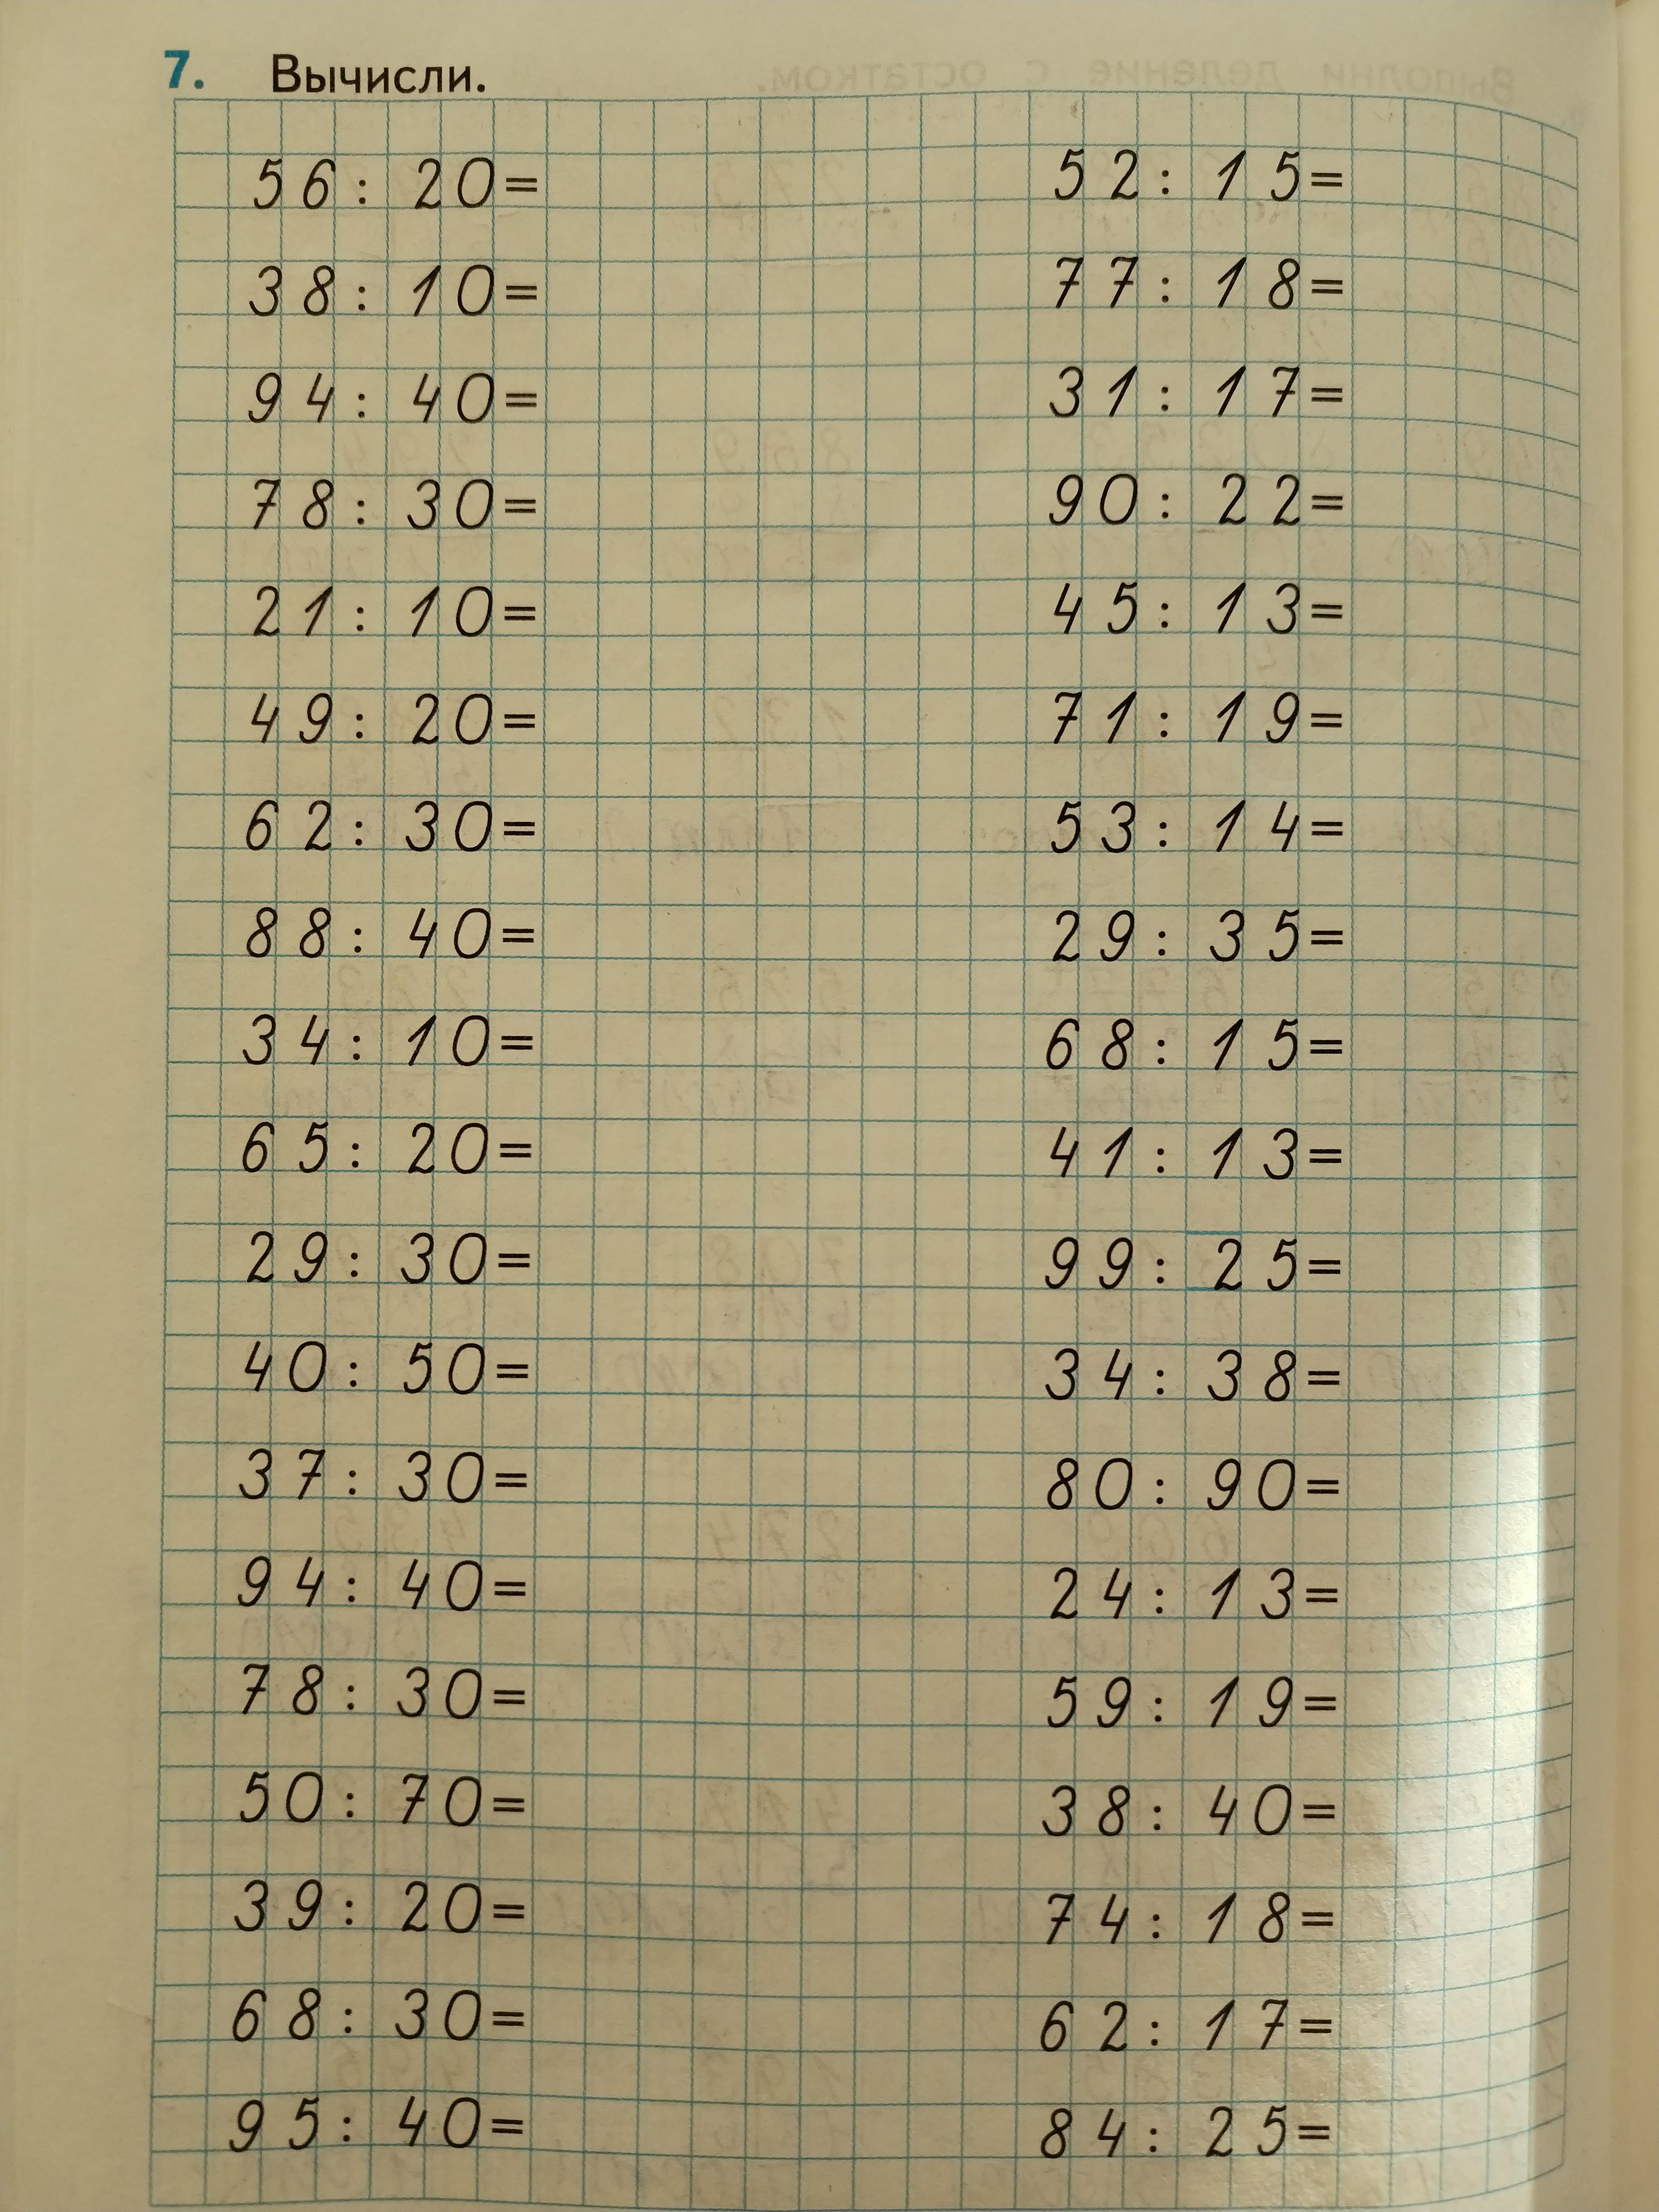 7. Вычисли.
56 : 20 = 52 : 15 =
38 : 10 = 77 : 18 =
94 : 40 = 31 : 17 =
78 : 30 = 90 : 22 =
21 : 10 = 45 : 13 =
49 : 20 = 71 : 19 =
62 : 30 = 53 : 14 =
88 : 40 = 29 : 35 =
34 : 10 = 68 : 15 =
65 : 20 = 41 : 13 =
29 : 30 = 99 : 25 =
40 : 50 = 34 : 38 =
37 : 30 = 80 : 90 =
94 : 40 = 24 : 13 =
78 : 30 = 59 : 19 =
50 : 70 = 38 : 40 =
39 : 20 = 74 : 18 =
68 : 30 = 62 : 17 =
95 : 40 = 84 : 25 =